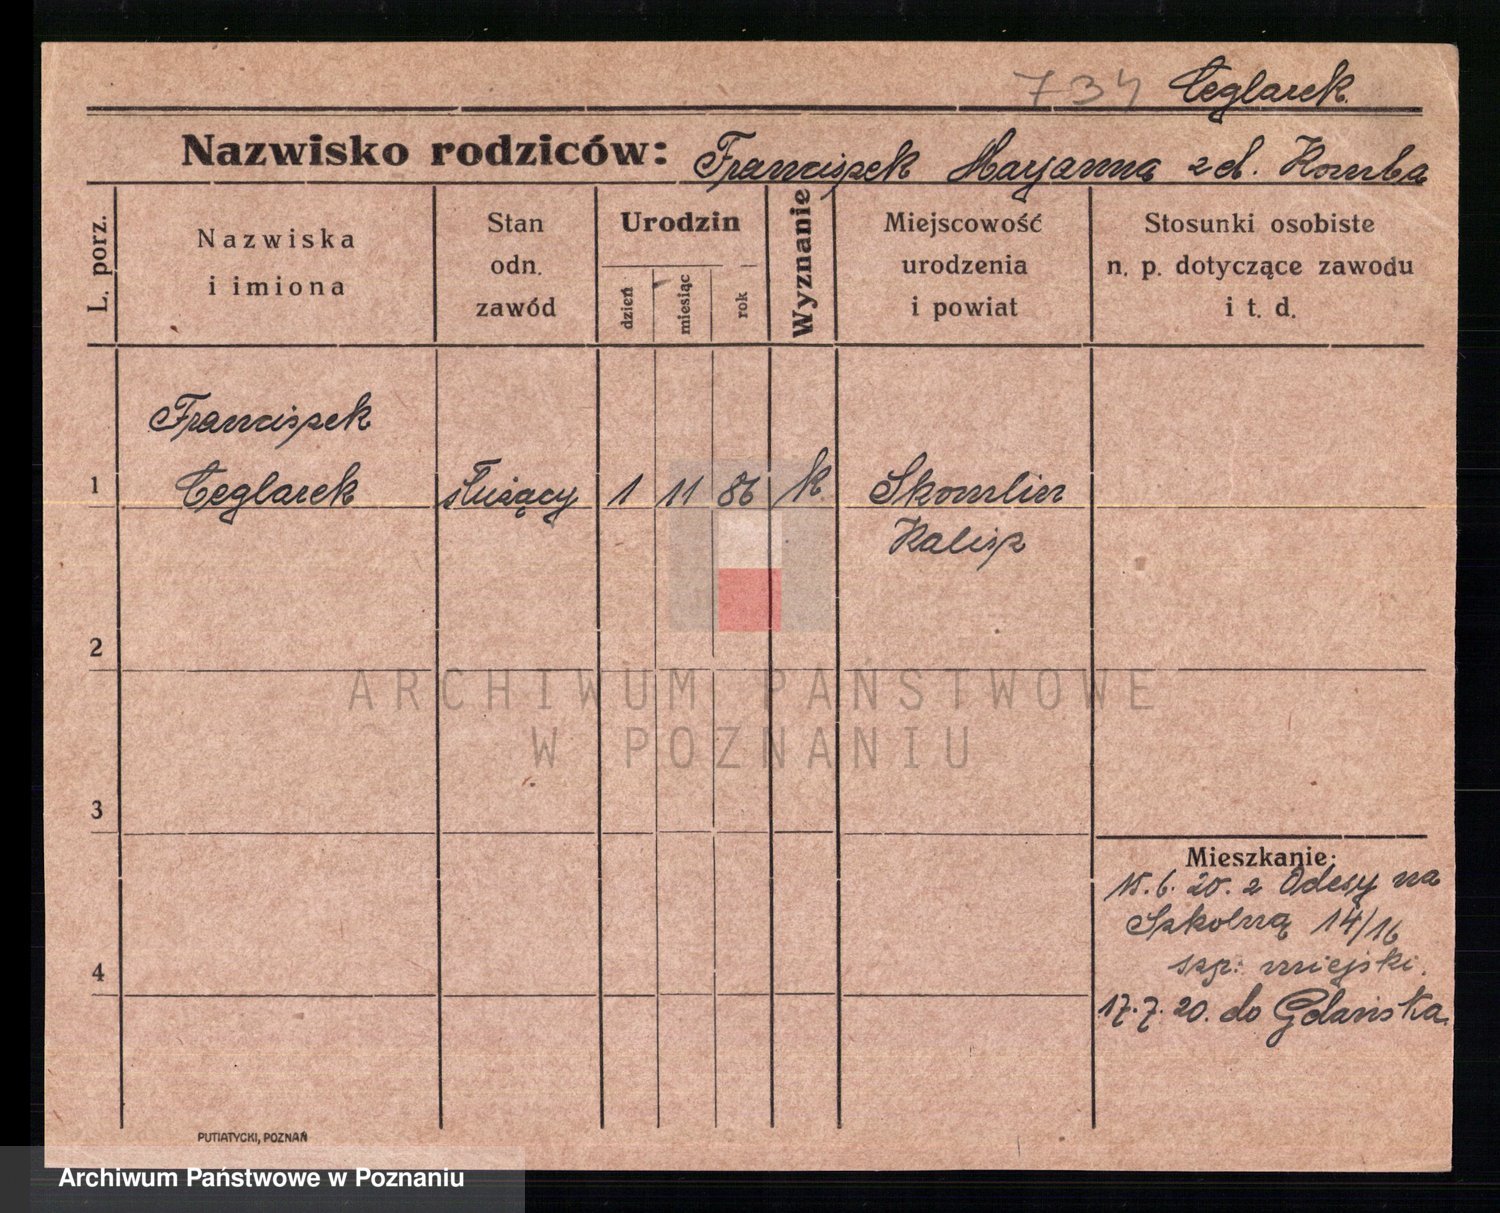 734 Ceglarek
Nazwisko rodziców: Franciszek Maryanna z d. Komba
L. porz.
Nazwiska
i imiona
Stan
odn.
zawód
Urodzin
dzień
miesiąc
rok
Wyznanie
Miejscowość
urodzenia
i powiat
Stosunki osobiste
n. p. dotyczące zawodu
i t. d.
Franciszek
1 Ceglarek służący 1 11 86 k Skomlin
Kalisz
2
ARCHIWUM PAŃSTWOWE
W POZNANIU
3
Mieszkanie:
15. 6. 20. z Odesy na
Szkolną 14/16
szp. miejski.
4
17. 7. 20. do Gdańska
PUTIATYCKI, POZNAŃ
Archiwum Państwowe w Poznaniu